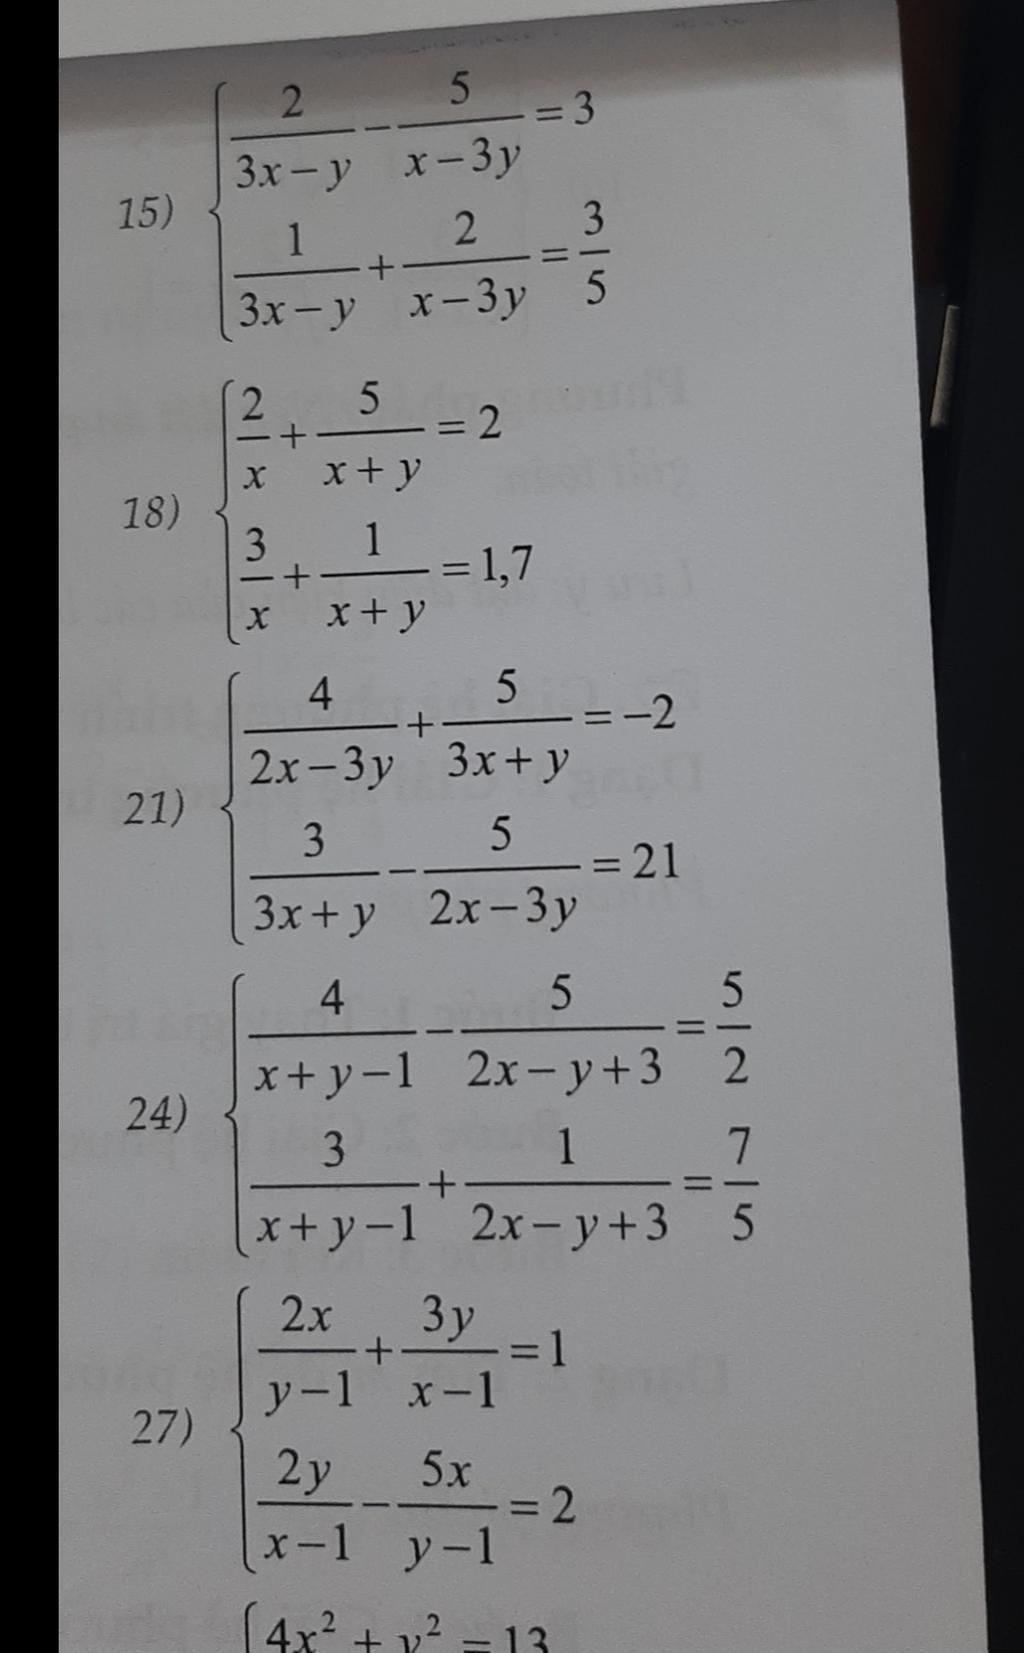 15) { 2/(3x − y) − 5/(x − 3y) = 3
1/(3x − y) + 2/(x − 3y) = 3/5
18) { 2/x + 5/(x + y) = 2
3/x + 1/(x + y) = 1,7
21) { 4/(2x − 3y) + 5/(3x + y) = −2
3/(3x + y) − 5/(2x − 3y) = 21
24) { 4/(x + y − 1) − 5/(2x − y + 3) = 5/2
3/(x + y − 1) + 1/(2x − y + 3) = 7/5
27) { 2x/(y − 1) + 3y/(x − 1) = 1
2y/(x − 1) − 5x/(y − 1) = 2
{ 4x² + y² = 13